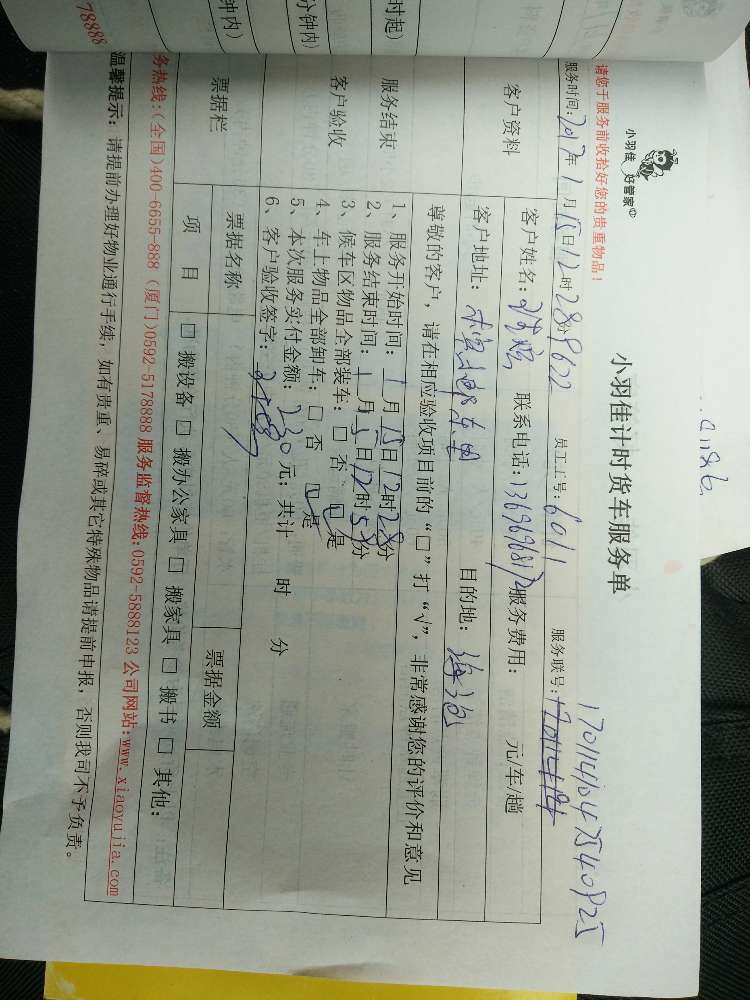 小羽佳 好管家
小羽佳计时货车服务单
请您于服务前收拾好您的贵重物品!
1701141047540825
服务时间:2017年1月15日12时28分 9622 员工工号:6011 服务联号:
客户资料
客户姓名: 联系电话: 服务费用: 元/车/趟
客户地址: 目的地:海沧
尊敬的客户,请在相应验收项目前的“□”打“√”,非常感谢您的评价和意见
服务结束
客户验收
1、服务开始时间:1月15日12时28分
2、服务结束时间:1月15日12时58分
3、候车区物品全部装车:□ 否 □ 是
4、车上物品全部卸车:□ 否 □ 是
5、本次服务实付金额:230元;共计 时 分
6、客户验收签字:
票据栏
票据名称 票据金额
项 目 □ 搬设备 □ 搬办公家具 □ 搬家具 □ 搬书 □ 其他:
务热线:(全国)400-6655-888 (厦门)0592-5178888 服务监督热线:0592-5888123 公司网站:www.xiaoyujia.com
温馨提示:请提前办理好物业通行手续,如有贵重、易碎或其它特殊物品请提前申报,否则我司不予负责。
时起)
分钟内)
钟内)
78888